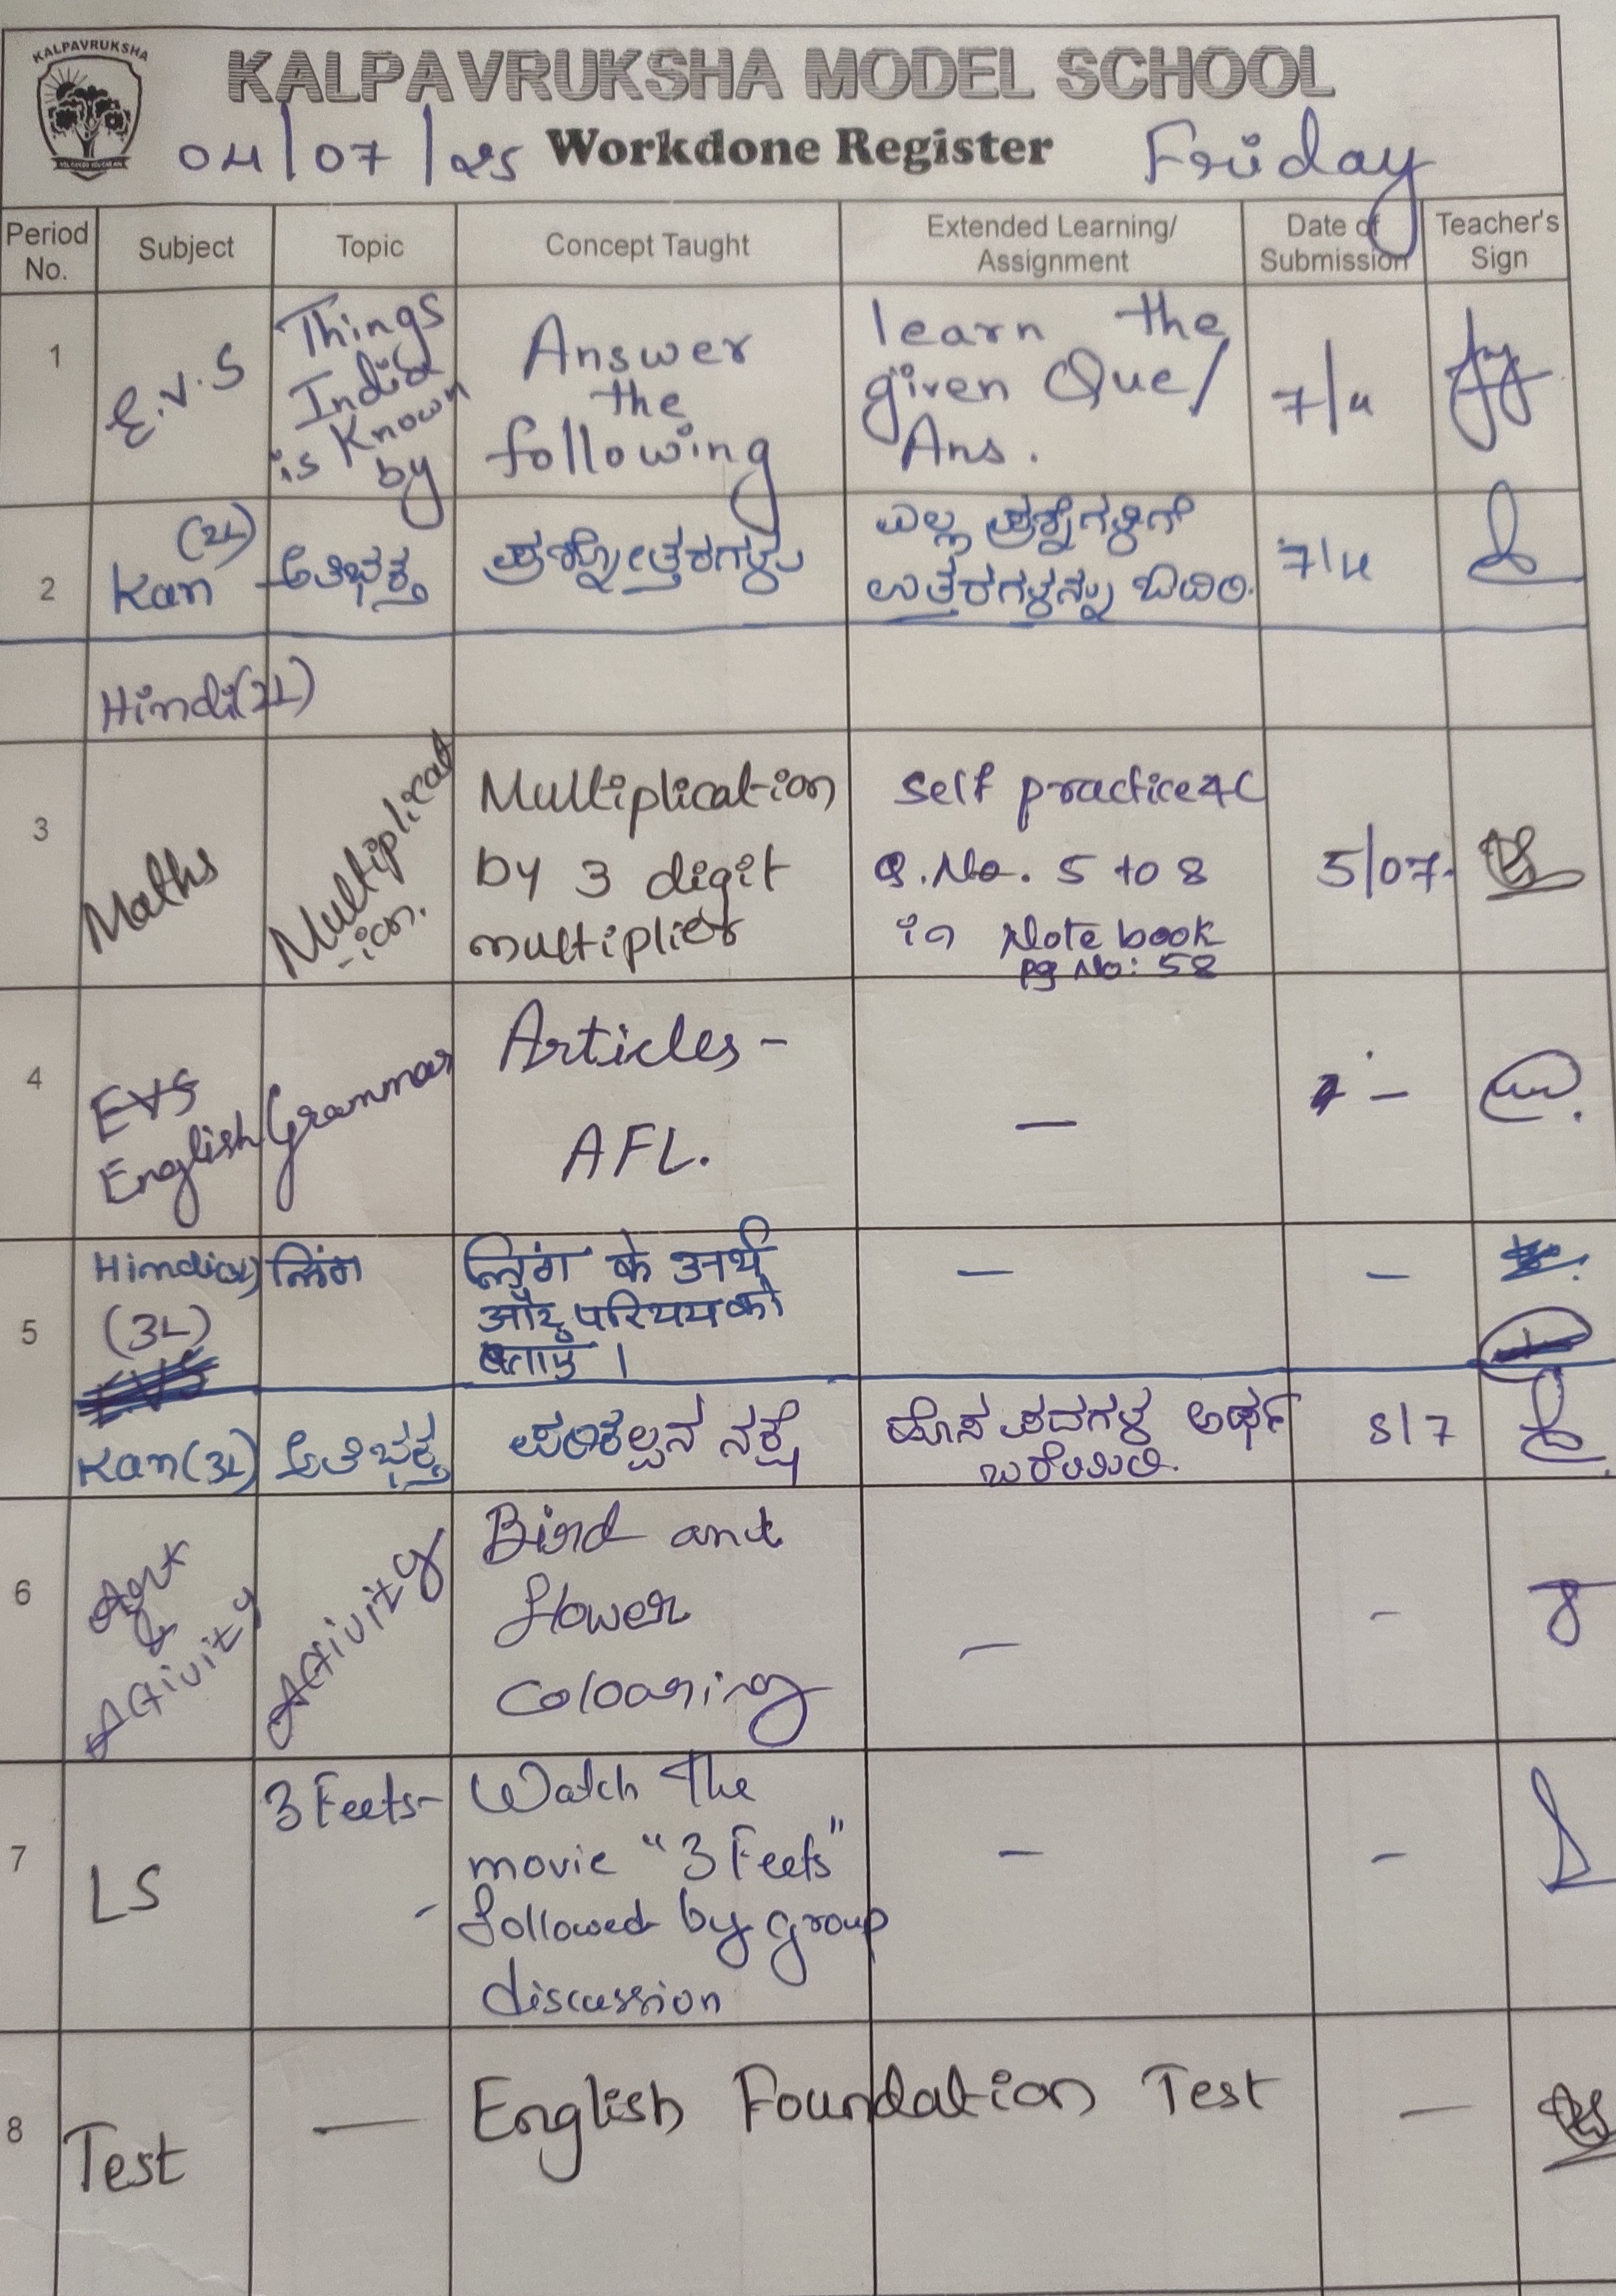 KALPAVRUKSHA
KALPAVRUKSHA MODEL SCHOOL
04/07/25 Workdone Register Friday
Period No. Subject Topic Concept Taught Extended Learning/ Assignment Date of Submission Teacher's Sign
1 E.V.S Things India is Known by Answer the following learn the given Que/ Ans. 7/4
2 Kan (2L) ಅತಿಭಕ್ತ ಪ್ರಶ್ನೋತ್ತರಗಳು ಎಲ್ಲ ಪ್ರಶ್ನೆಗಳಿಗೆ ಉತ್ತರಗಳನ್ನು 7/4
Hindi (2L)
3 Maths Multiplicat -ion. Multiplication by 3 digit multiplier Self practice 4C Q.No. 5 to 8 in Note book pg No: 58 5/07.
4 EVS English Grammar Articles - AFL. — –
5 Hindi (3L) लिंग लिंग के अर्थ और परिचय को बताएँ । — –
Kan (3L) ಅತಿಭಕ್ತ ಪರಿಕಲ್ಪನ ನಕ್ಷೆ ಹೊಸ ಪದಗಳ ಅರ್ಥ ಬರೆಯಿರಿ. 8/7
6 Art & Activity Activity Bird and flower Colouring — –
7 LS 3 Feets- - Watch The movie "3 Feets" followed by group discussion – –
8 Test — English Foundation Test —